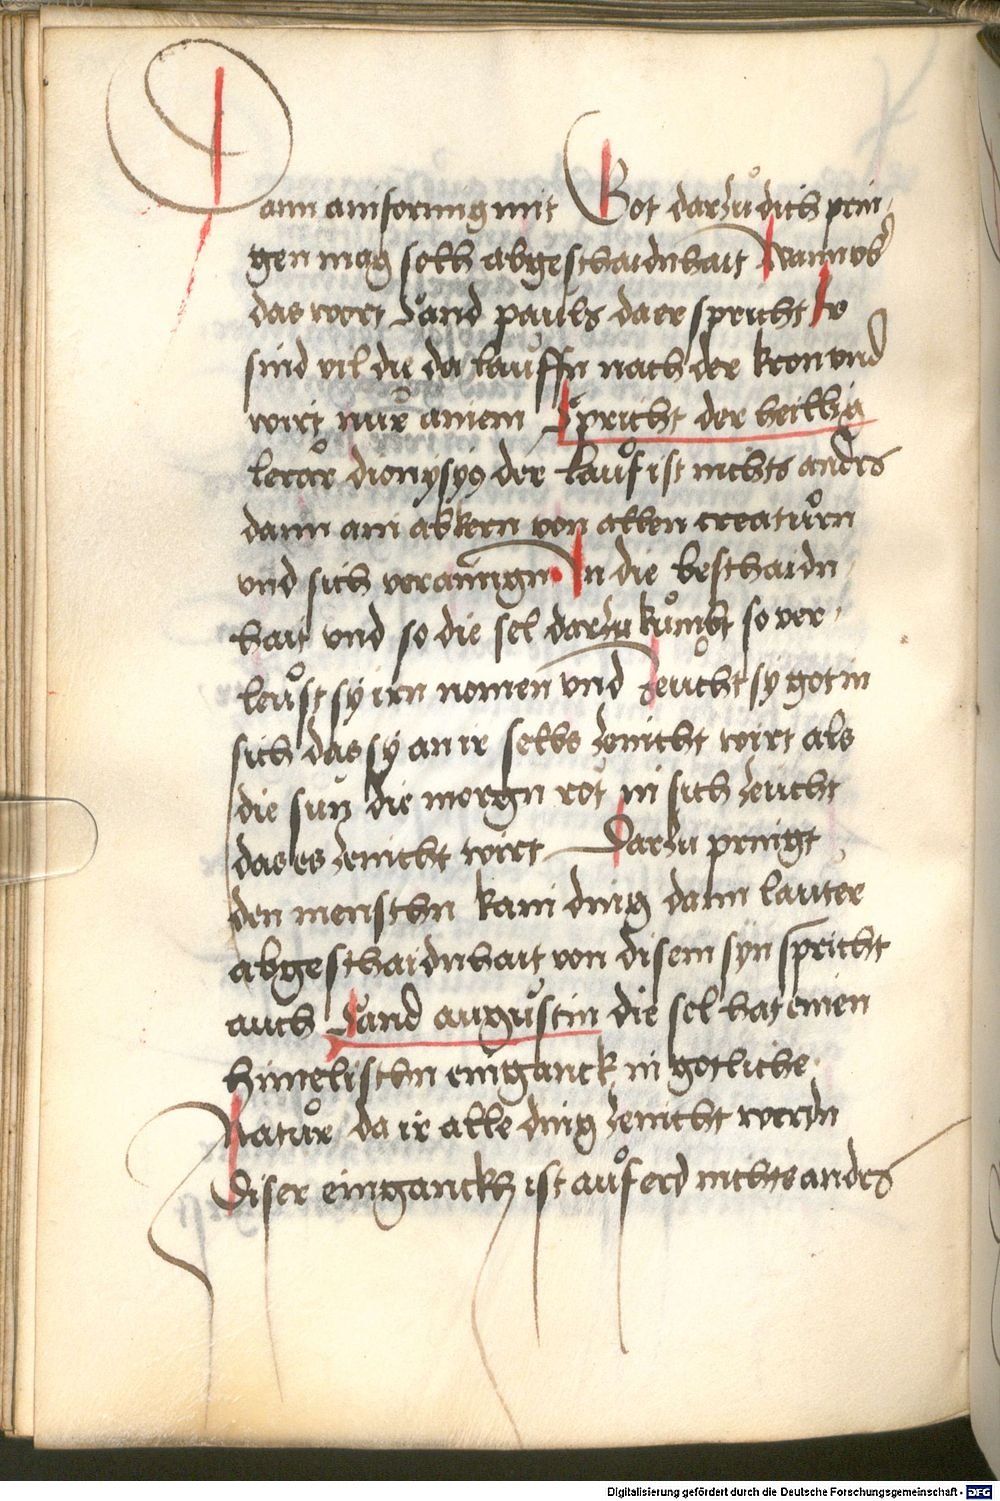 Dann ainforung mit Got dar zu dich prin
gen mag solh abgeschaidnhait Wann vb
das wort Sand pauls da er spricht Ir
sind vil die da lauffn nach der kron vnd
wirt nur ainem Spricht der heillig
lerar dionysyus der lauf ist nichts andrs
dann ain abkern von allen creaturn
vnd sich verainign In die beschaidn
hait vnd so die sel dar zu kumbt so ver
leust sy irn nomen vnd zeucht sy got in
sich das sy an ir selbs zenicht wirt als
die sun die morgn rot in sich zeucht
das es zenicht wirt Dar zu pringt
den menschn kain ding dann lauter
abgeschaidnhait von disem syn spricht
auch Sand augustin die sel hat einen
himelischn einganck in gotliche
Natur da ir alle ding zenicht werdn
Diser eingannckh ist auf erd nichts andrs
Digitalisierung gefördert durch die Deutsche Forschungsgemeinschaft - DFG